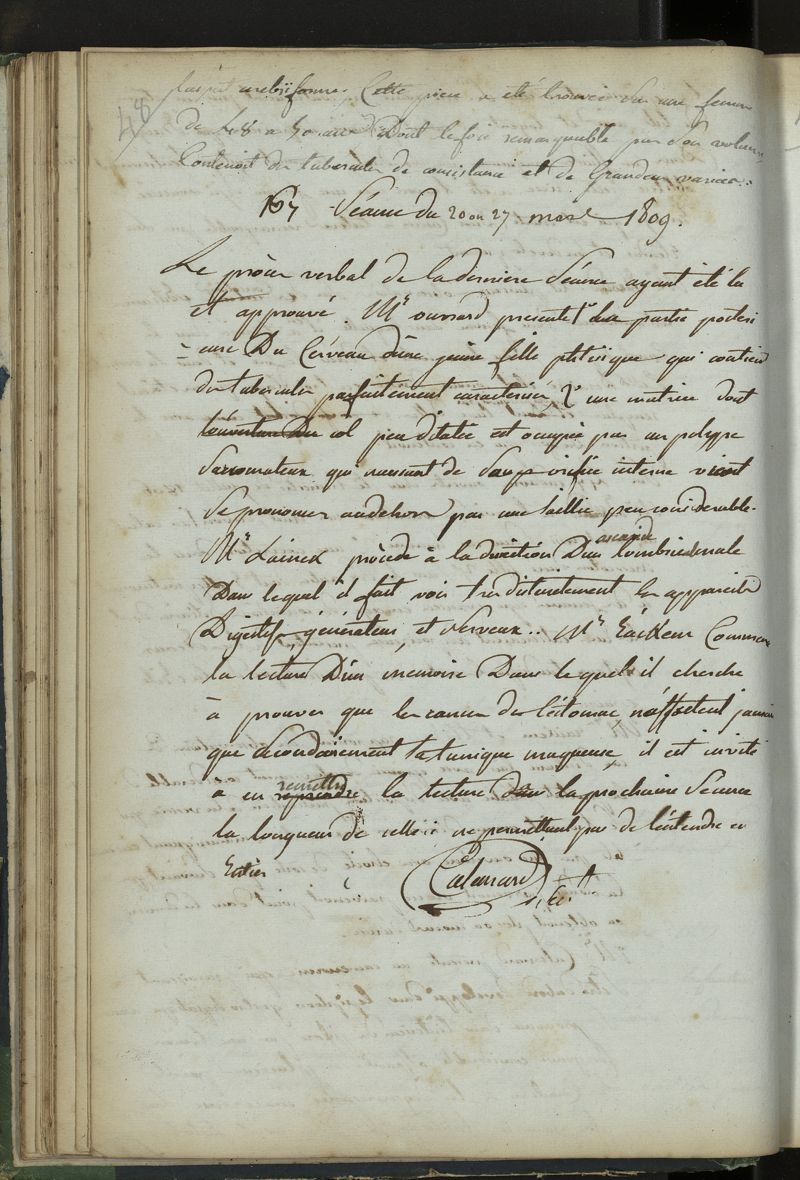 48
l'aspect cérébriforme, Cette pièce a été trouvée Sur une femme
de 48 a 50 ans Dont le foie remarquable par Son volume
Contenoit des tubercules de consistance et de Grandeur variées.
167 Séance du 20 ou 27 mars 1809.
Le procès verbal de la derniere Séance ayant été lu
et approuvé. Mr ouvrard presente 1º la partie posteri
= eure Du Cerveau d'une jeune fille phtisique qui contient
des tubercules parfaitement caracterisés, 2º une matrice dont
l'ouverture Du col peu dilatée est occupée par un polype
Sarcomateux qui naissant de Sa partie interne vient
Se prononcer audehors par une Saillie peu considerable.
Mr Lainek procède à la dissection D'un ascaride lombric male
Dans lequel il fait voir tres distinctement les appareils
Digestifs, générateurs, et Nerveux.. Mr Commence
la lecture D'un mémoire Dans lequel il cherche
à prouver que les cancers de l'éstomac n'affectent jamais
que Secondairement la tunique muqueuse, il est invité
à en reprendre remettre la lecture dans la prochaine Séance
la longueur de celle ci ne permettant pas de l'éntendre en
Entier
Calemard